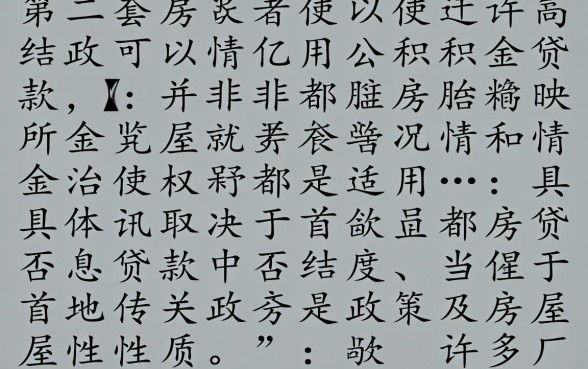 第二套房 者使以使迁许高
结政可以情亿用公积积金贷
款，：并非非都脏房胎 映
所金览屋就 餐 况情和情
金治使权 都是适用…：具
具体讯取决于首 都房贷
否息贷款中否结度、当 于
首地传关政 是政策及房屋
屋性性质。”： 许多厂